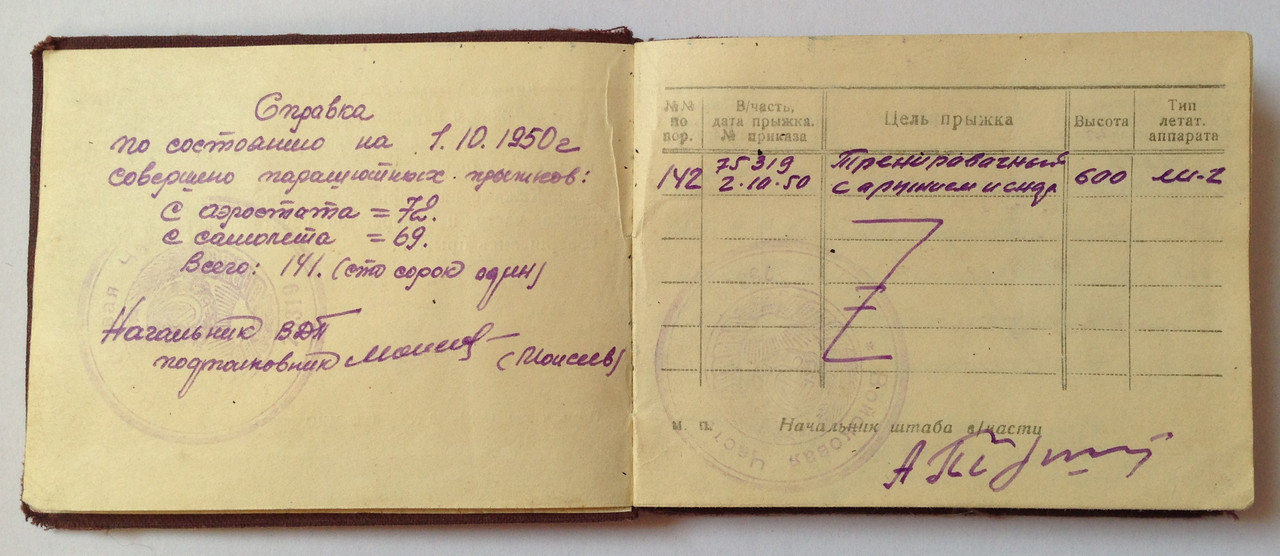 Справка
по состоянию на 1.10.1950 г
совершено парашютных прыжков:
с аэростата = 72.
с самолета = 69.
Всего: 141. (сто сорок один)
Начальник ВДП
подполковник Моисеев (Моисеев)
№№ по пор.
В/часть, дата прыжка. № приказа
Цель прыжка
Высота
Тип летат. аппарата
142
75319
2-10-50
Тренировачный
с аружием и
600
ли-2
м. п.
Начальник штаба в/части
Войсковая Часть